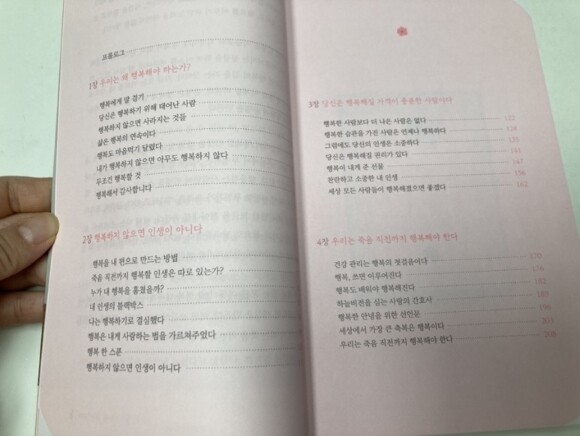 프롤로그
1장 우리는 왜 행복해야 하는가?
행복에게 말 걸기
당신은 행복하기 위해 태어난 사람
행복하지 않으면 사라지는 것들
삶은 행복의 연속이다
행복도 마음먹기 달렸다
내가 행복하지 않으면 아무도 행복하지 않다
무조건 행복할 것
행복해서 감사합니다
2장 행복하지 않으면 인생이 아니다
행복을 내 편으로 만드는 방법
죽음 직전까지 행복할 인생은 따로 있는가?
누가 내 행복을 훔쳤을까?
내 인생의 블랙박스
나는 행복하기로 결심했다
행복은 내게 사랑하는 법을 가르쳐주었다
행복 한 스푼
행복하지 않으면 인생이 아니다
3장 당신은 행복해질 자격이 충분한 사람이다
행복한 사람보다 더 나은 사람은 없다 122
행복한 습관을 가진 사람은 언제나 행복하다 128
그럼에도 당신의 인생은 소중하다
당신은 행복해질 권리가 있다 141
행복이 내게 준 선물 147
찬란하고 소중한 내 인생
세상 모든 사람들이 행복해졌으면 좋겠다 162
4장 우리는 죽음 직전까지 행복해야 한다
건강 관리는 행복의 첫걸음이다 170
행복, 쓰면 이루어진다 176
행복도 배워야 행복해진다
하늘비전을 심는 사랑의 간호사
행복한 안녕을 위한 선언들
세상에서 가장 큰 축복은 행복이다
우리는 죽음 직전까지 행복해야 한다 208